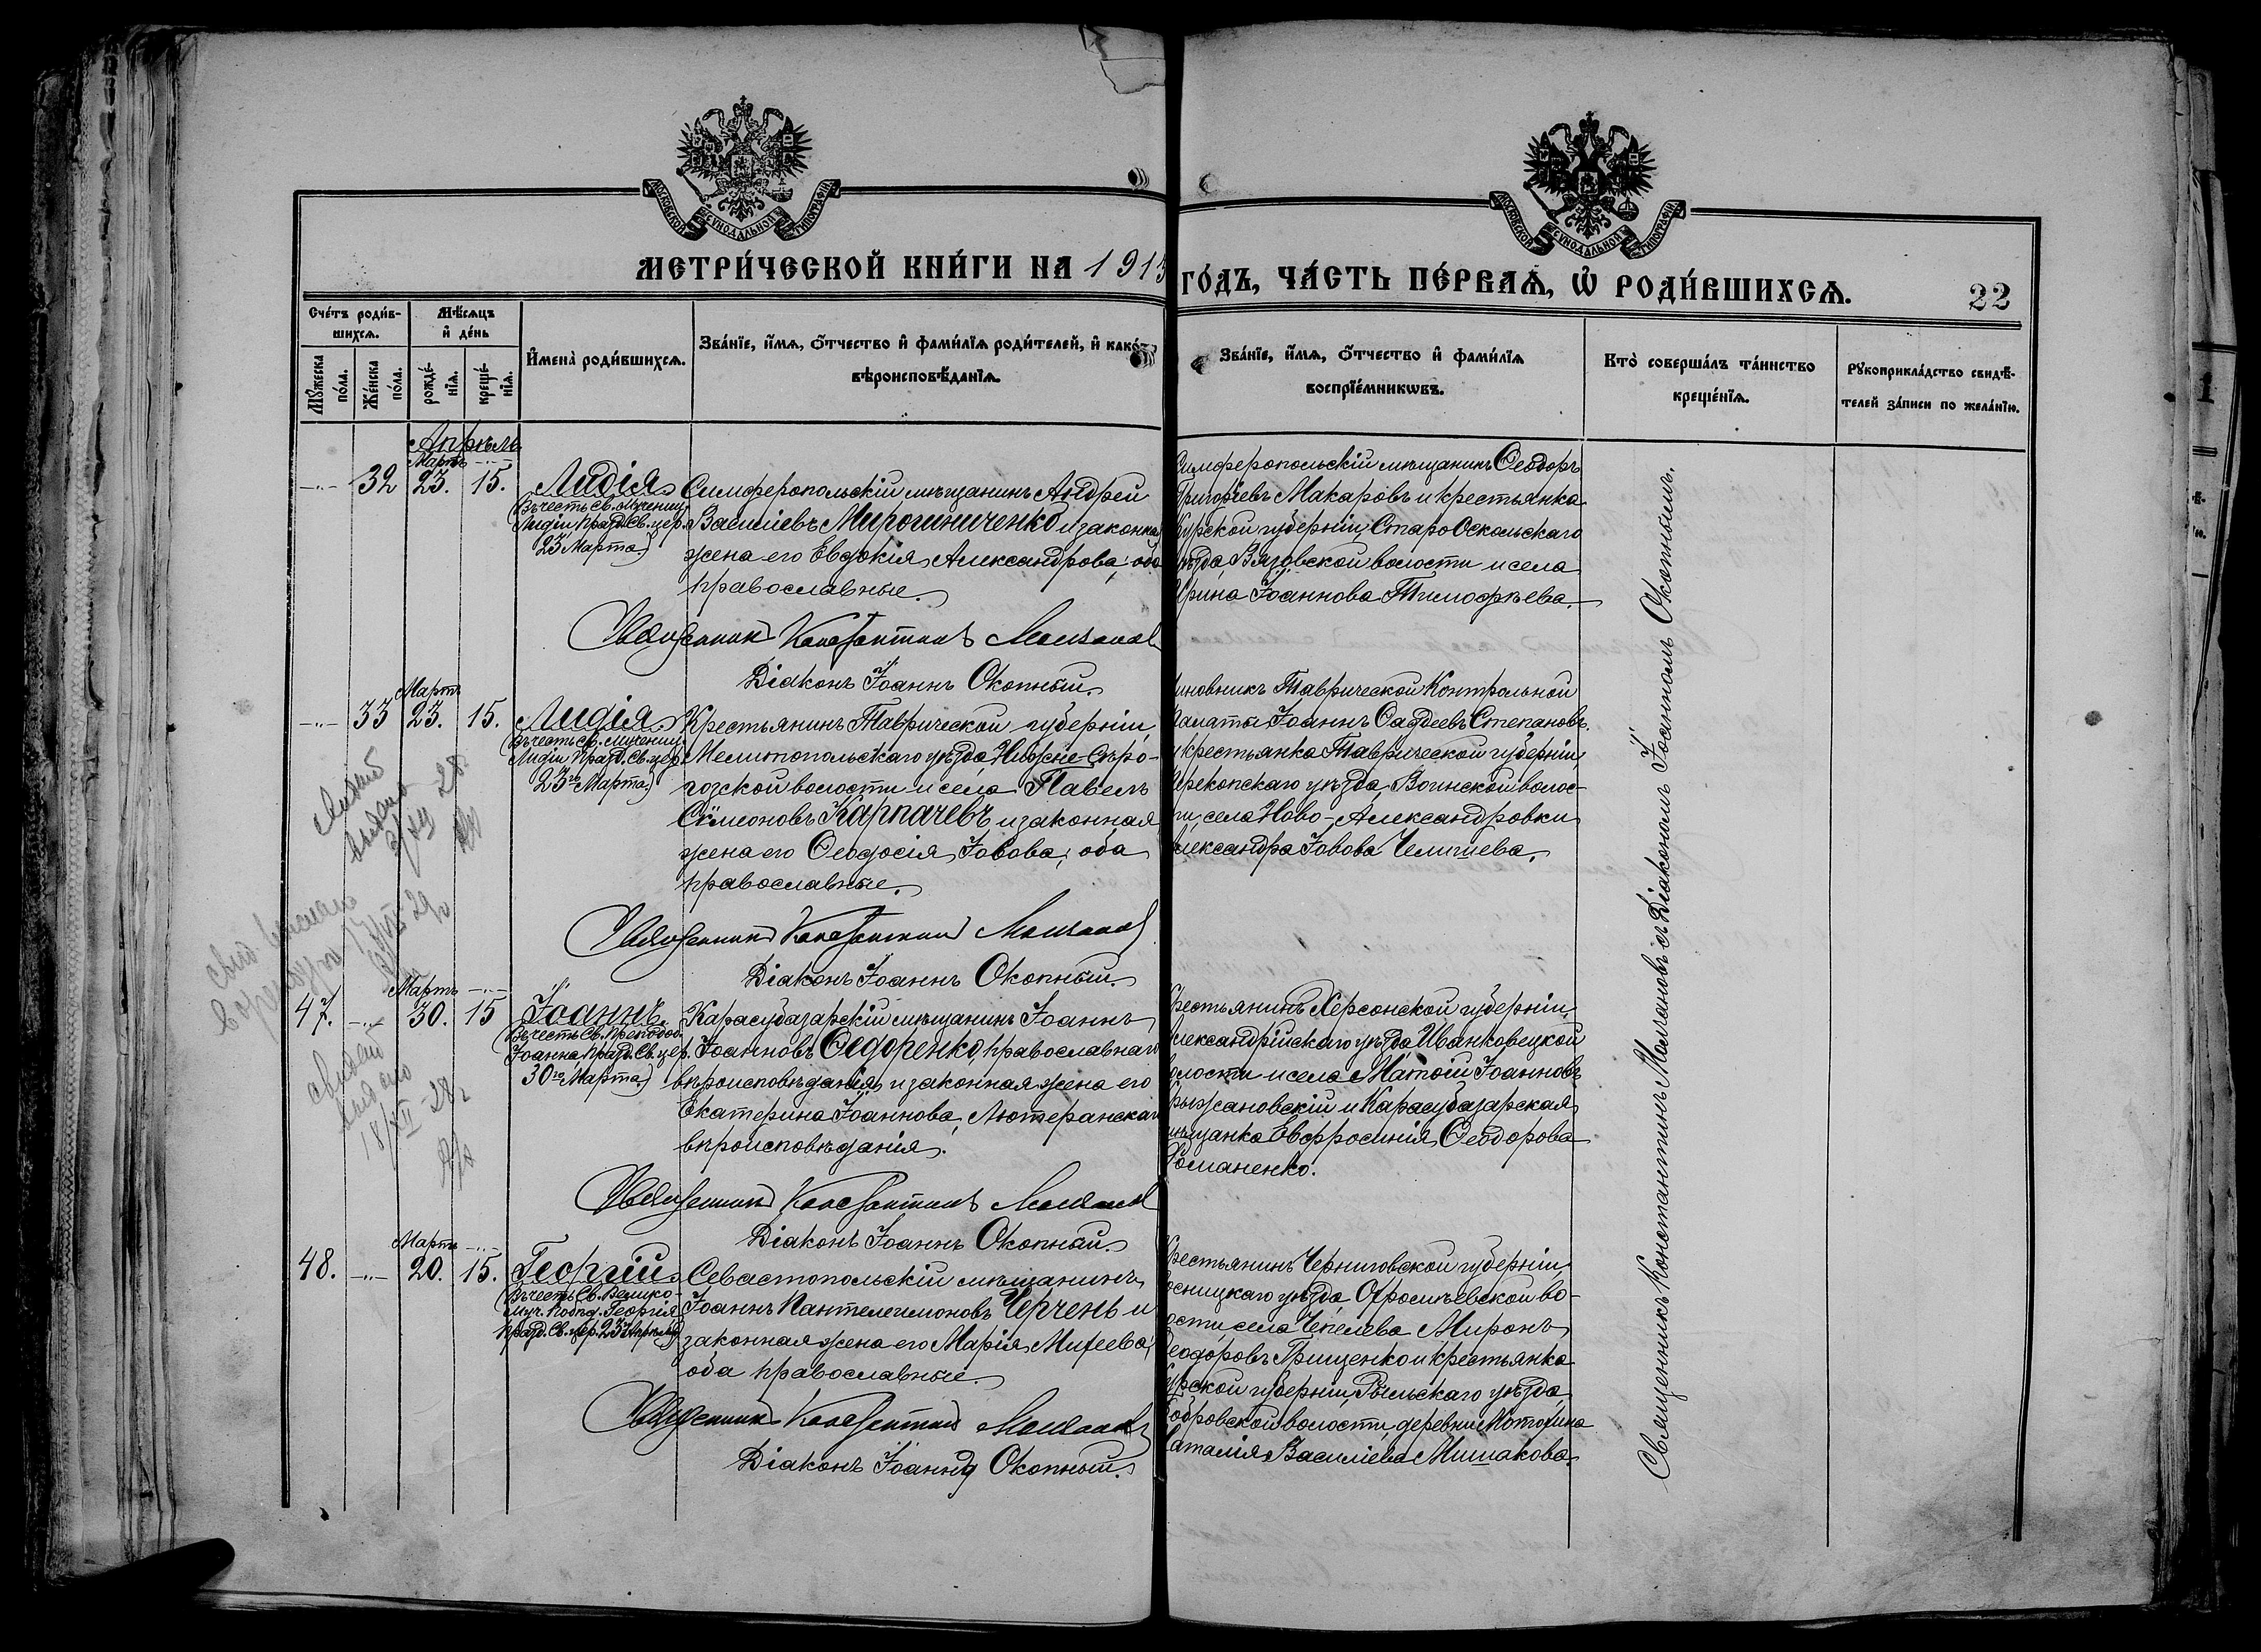 МОСКОВСКОЙ СѴНОДАЛЬНОЙ ТИПОГРАФІИ
МОСКОВСКОЙ СѴНОДАЛЬНОЙ ТИПОГРАФІИ
МЕТРИ́ЧЕСКОЙ КНИ́ГИ НА 1913
ГО́ДЪ, ЧА́СТЬ ПЕ́РВАѦ, Ѡ҆ РОДИ́ВШИХСѦ.
22
Сче́тъ роди́в-
шихсѧ.
Мѣ́сѧцъ
и҆ де́нь
Мꙋ́жеска
по́ла.
Же́нска
по́ла.
рожде́-
нїѧ.
креще́-
нїѧ.
И҆мена̀ роди́вшихсѧ.
Зва́нїе, и҆́мѧ, ѻ҆́тчество и҆ фами́лїѧ роди́телей, и҆ како́-
вѣроисповѣ́данїѧ.
Зва́нїе, и҆́мѧ, ѻ҆́тчество и҆ фами́лїѧ
воспрїе́мникѡвъ.
Кто̀ соверша́лъ та́инство
креще́нїѧ.
Рꙋкоприкла́дство свидѣ́-
телей за́писи по жела́нїю.
Апрѣль
Мартъ -..-
-..- 32 23. 15. Лидія
Въ честь Св. Мучениц.
Лидіи празд. Св. цер.
23 Марта.)
Симферопольскій мѣщанинъ Андрей
Василіевъ Мирошниченко и законная
жена его Евдокія Александрова; оба
православные.
Священникъ Константинъ Молчановъ
Діаконъ Іоаннъ Окопный.
Симферопольскій мѣщанинъ Ѳеодоръ
Григоріевъ Макаровъ и крестьянка
Курской губерніи, СтароОскольскаго
уѣзда, Вязовской волости и села
Ирина Іоаннова Тимофѣева.
Мартъ
-..- 33 23. 15. Лидія
Въ честь Св. Мучениц.
Лидіи празд. Св. цер.
23го Марта.)
Крестьянинъ Таврической губерніи,
Мелитопольскаго уѣзда, Нижне-Сѣро-
гозской волости и села Павелъ
Симеоновъ Карпачевъ и законная
жена его Ѳеодосія Іовова; оба
православные.
Священникъ Константинъ Молчановъ
Діаконъ Іоаннъ Окопный.
Чиновникъ Таврической Контрольной
Палаты Іоаннъ Ѳаддеевъ Степановъ
и крестьянка Таврической губерніи
Перекопскаго уѣзда, Воинской волос-
ти, села Ново-Александровки
Александра Іовова Челышева.
Мартъ -..-
47. -..- 30. 15 Іоаннъ
Въ честь Св. Преподоб.
Іоанна празд. Св. цер.
30го Марта.)
Карасубазарскій мѣщанинъ Іоаннъ
Іоанновъ Ѳедоренко, православнаго
вѣроисповѣданія, и законная жена его
Екатерина Іоаннова, Лютеранскаго
вѣроисповѣданія.
Священникъ Константинъ Молчановъ
Діаконъ Іоаннъ Окопный.
Крестьянинъ Херсонской губерніи
Александрійскаго уѣзда Иванковецкой
волости и села Матѳій Іоанновъ
Крыжановскій и Карасубазарская
мѣщанка Евфросинія Ѳеодорова
Романенко.
Мартъ -..-
48. -..- 20. 15. Георгій
Въ честь Св. Велико-
муч. Побѣд. Георгія
празд. Св. цер. 23 Апрѣля)
Севастопольскій мѣщанинъ
Іоаннъ Пантелеимоновъ Черчень и
законная жена его Марія Михеева;
оба православные.
Священникъ Константинъ Молчановъ
Діаконъ Іоаннъ Окопный.
Крестьянинъ Черниговской губерніи
Сосницкаго уѣзда, во-
лости села Чепелева Миронъ
Ѳеодоровъ Грищенко и крестьянка
Курской губерніи, Рыльскаго уѣзда,
Бобровской волости, деревни
Наталія Василіева Мишакова.
Священникъ Константинъ Молчановъ съ Діакономъ Іоанномъ Окопнымъ.
18/XII-28г